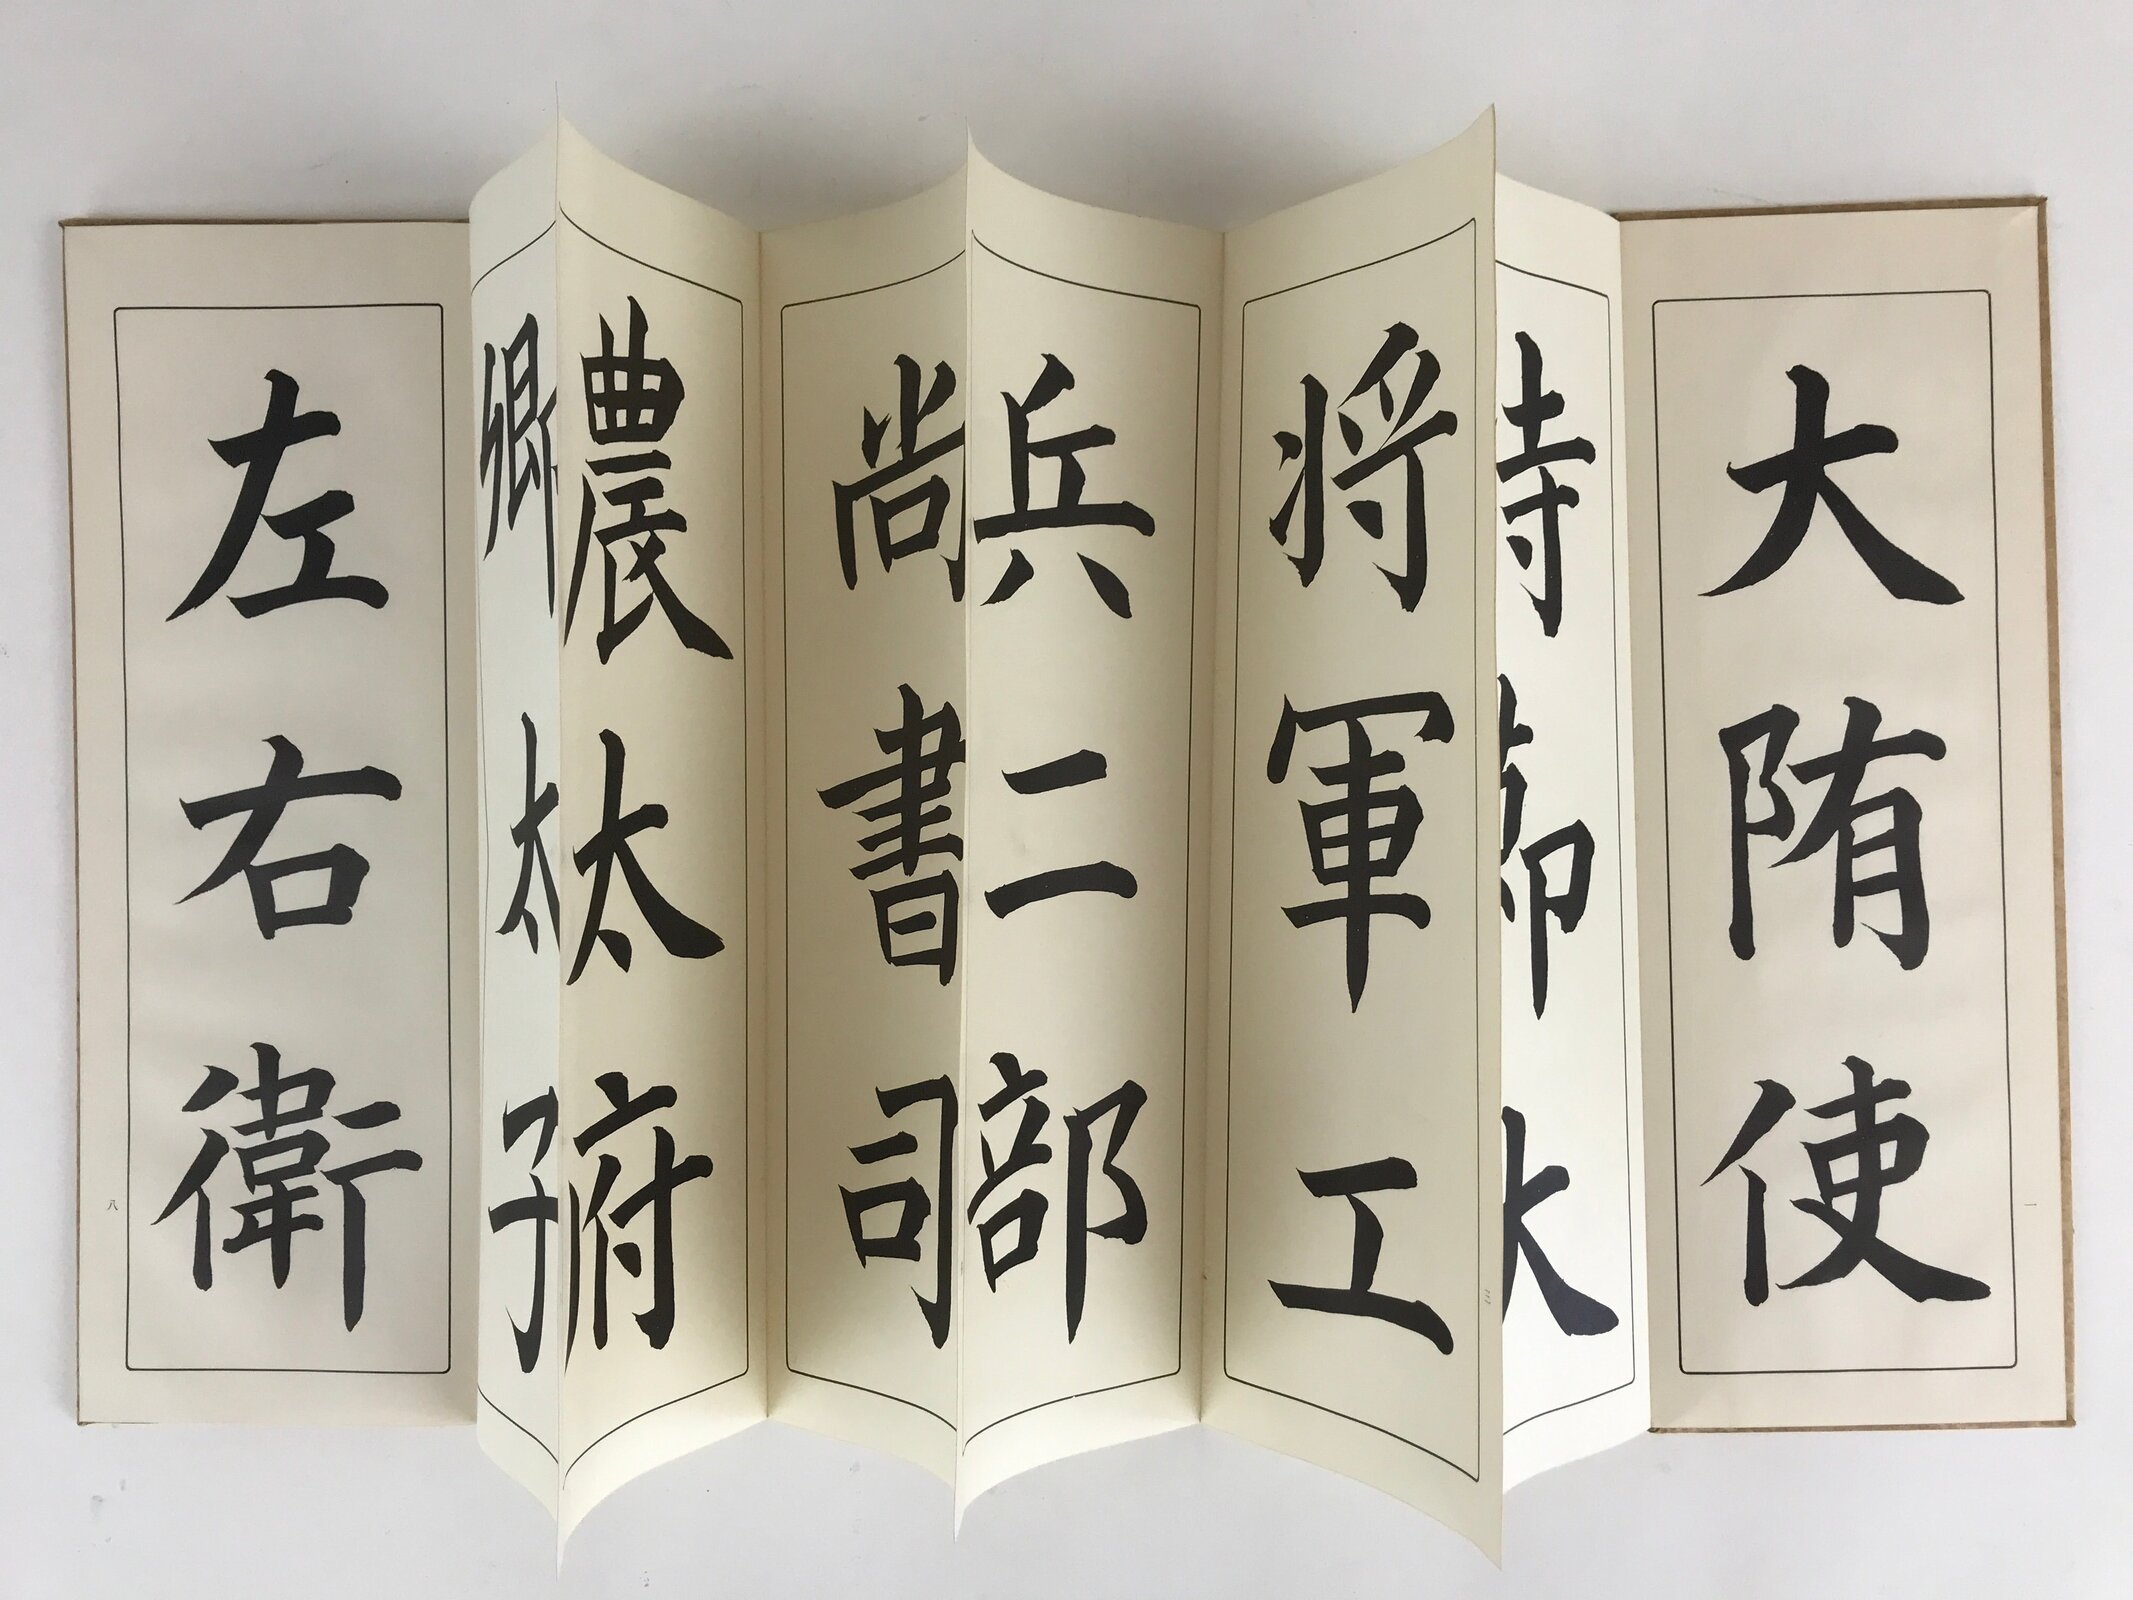 大陏使
持節大
将軍工
兵二部
尚書司
農太府
卿太子
左右衛
一
八